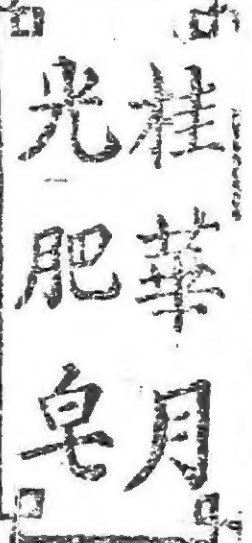 桂華月
光肥皂